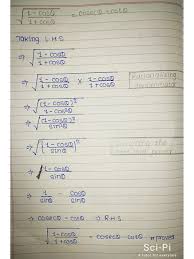 √(1-cosθ / 1+cosθ) = cosecθ - cotθ
Taking LHS
⇒ √(1-cosθ / 1+cosθ)
⇒ √(1-cosθ / 1+cosθ × 1-cosθ / 1-cosθ) Rationalizing denominator
⇒ √((1-cosθ)² / 1-cos²θ)
⇒ √((1-cosθ)² / sin²θ)
⇒ √(1-cosθ / sinθ)²
⇒ 1-cosθ / sinθ
⇒ 1 / sinθ - cosθ / sinθ
⇒ cosecθ - cotθ ⇒ RHS
√(1-cosθ / 1+cosθ) = cosecθ - cotθ proved
Sci-Pi